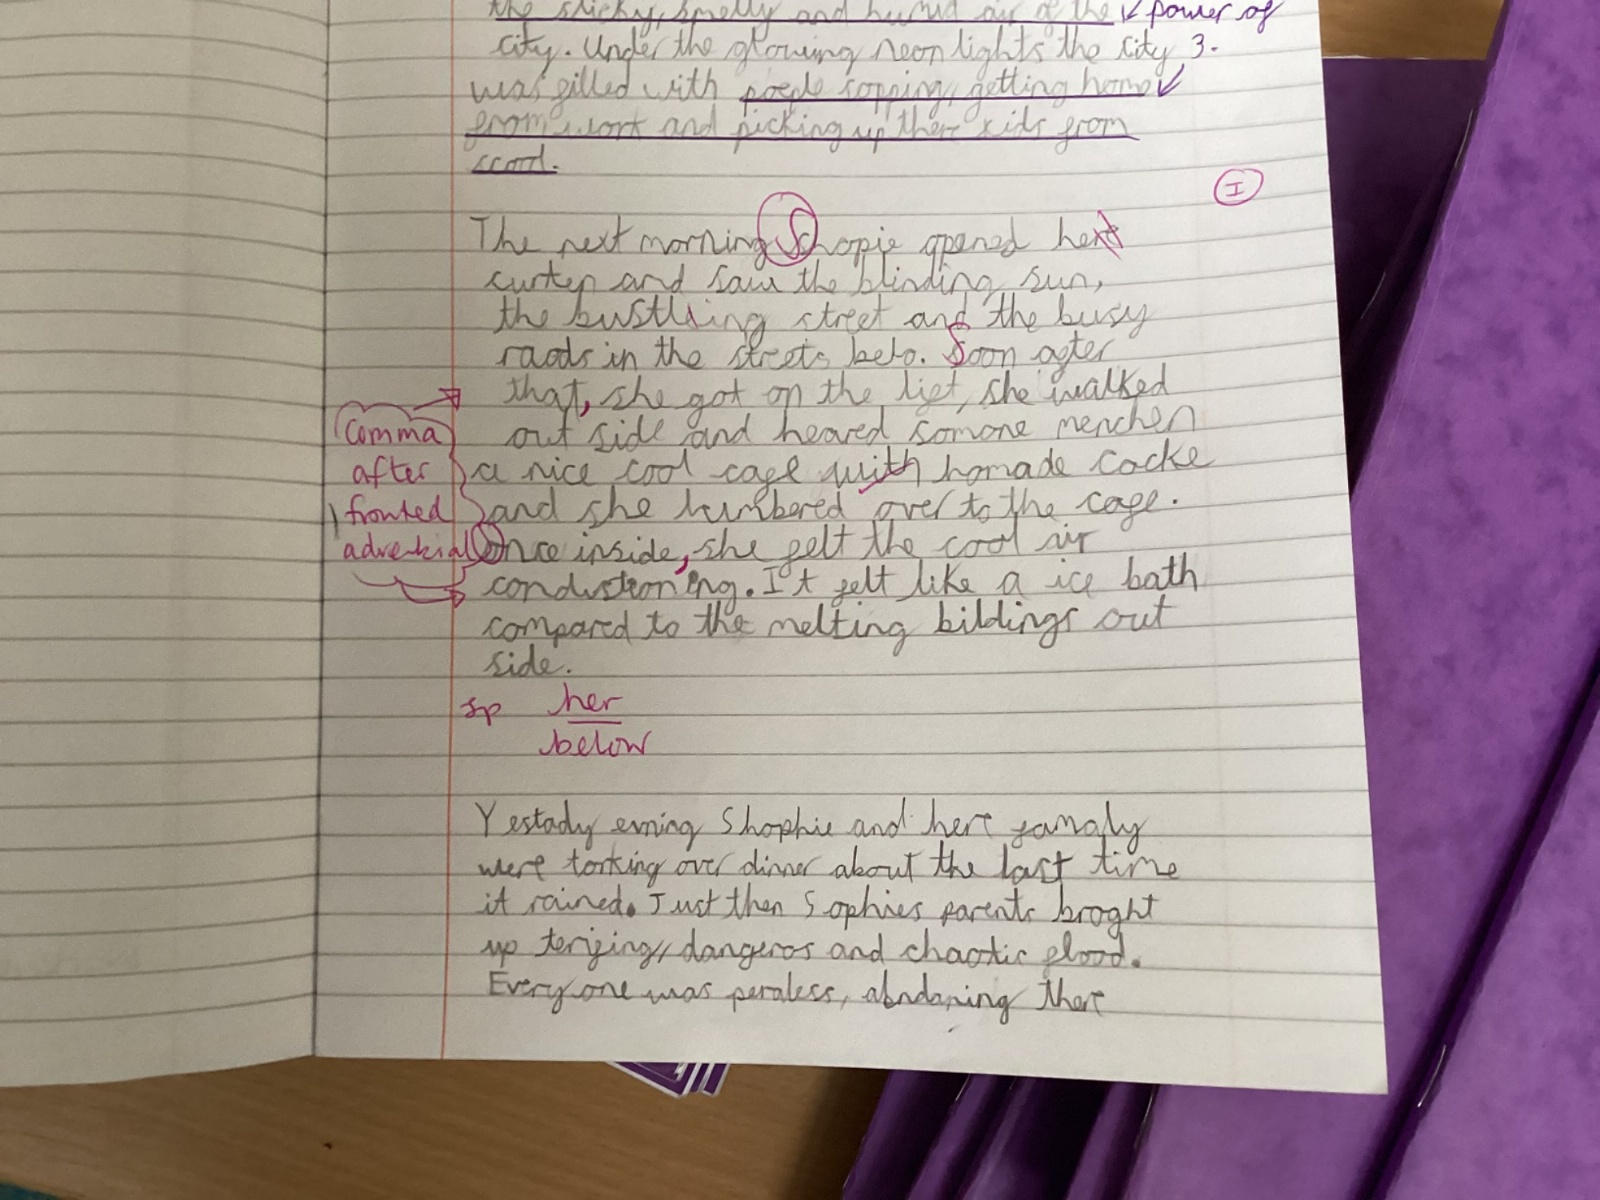 the sticky, smelly and humid air of the ✓ power of
city. Under the glowing neon lights the city 3.
was filled with poeple sopping, getting home ✓
from work and picking up there kids from
scool.
I
The next morning Shopie opened here
curten and saw the blinding sun,
the bustling street and the busy
raods in the streets belo. Soon after
that, she got on the lift, she walked
out side and heared somone menchen
a nice cool cafe with homade cocke
and she lumbered over to the cafe.
Once inside, she felt the cool air
condistioning. It felt like a ice bath
compared to the melting bildings out
side.
comma
after
fronted
adverbial
sp her
below
Yestady evning Shophie and here famaly
were torking over dinner about the last time
it rained. Just then Sophies parents broght
up terifing, dangeros and chaotic flood.
Every one was peraless, abndaning there